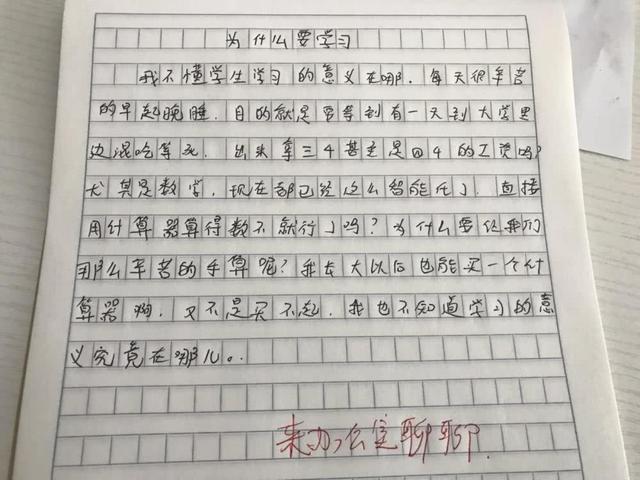 为什么要学习
我不懂学生学习的意义在哪.每天很辛苦
的早起晚睡.目的就是要等到有一天到大学里
边混吃等死.出来拿三千甚至是四千的工资吗?
尤其是数学,现在都已经这么智能化了.直接
用计算器算得数不就行了吗?为什么要让我们
那么辛苦的手算呢?我长大以后也能买一个计
算器啊,又不是买不起.我也不知道学习的意
义究竟在哪儿。.
来办公室聊聊.